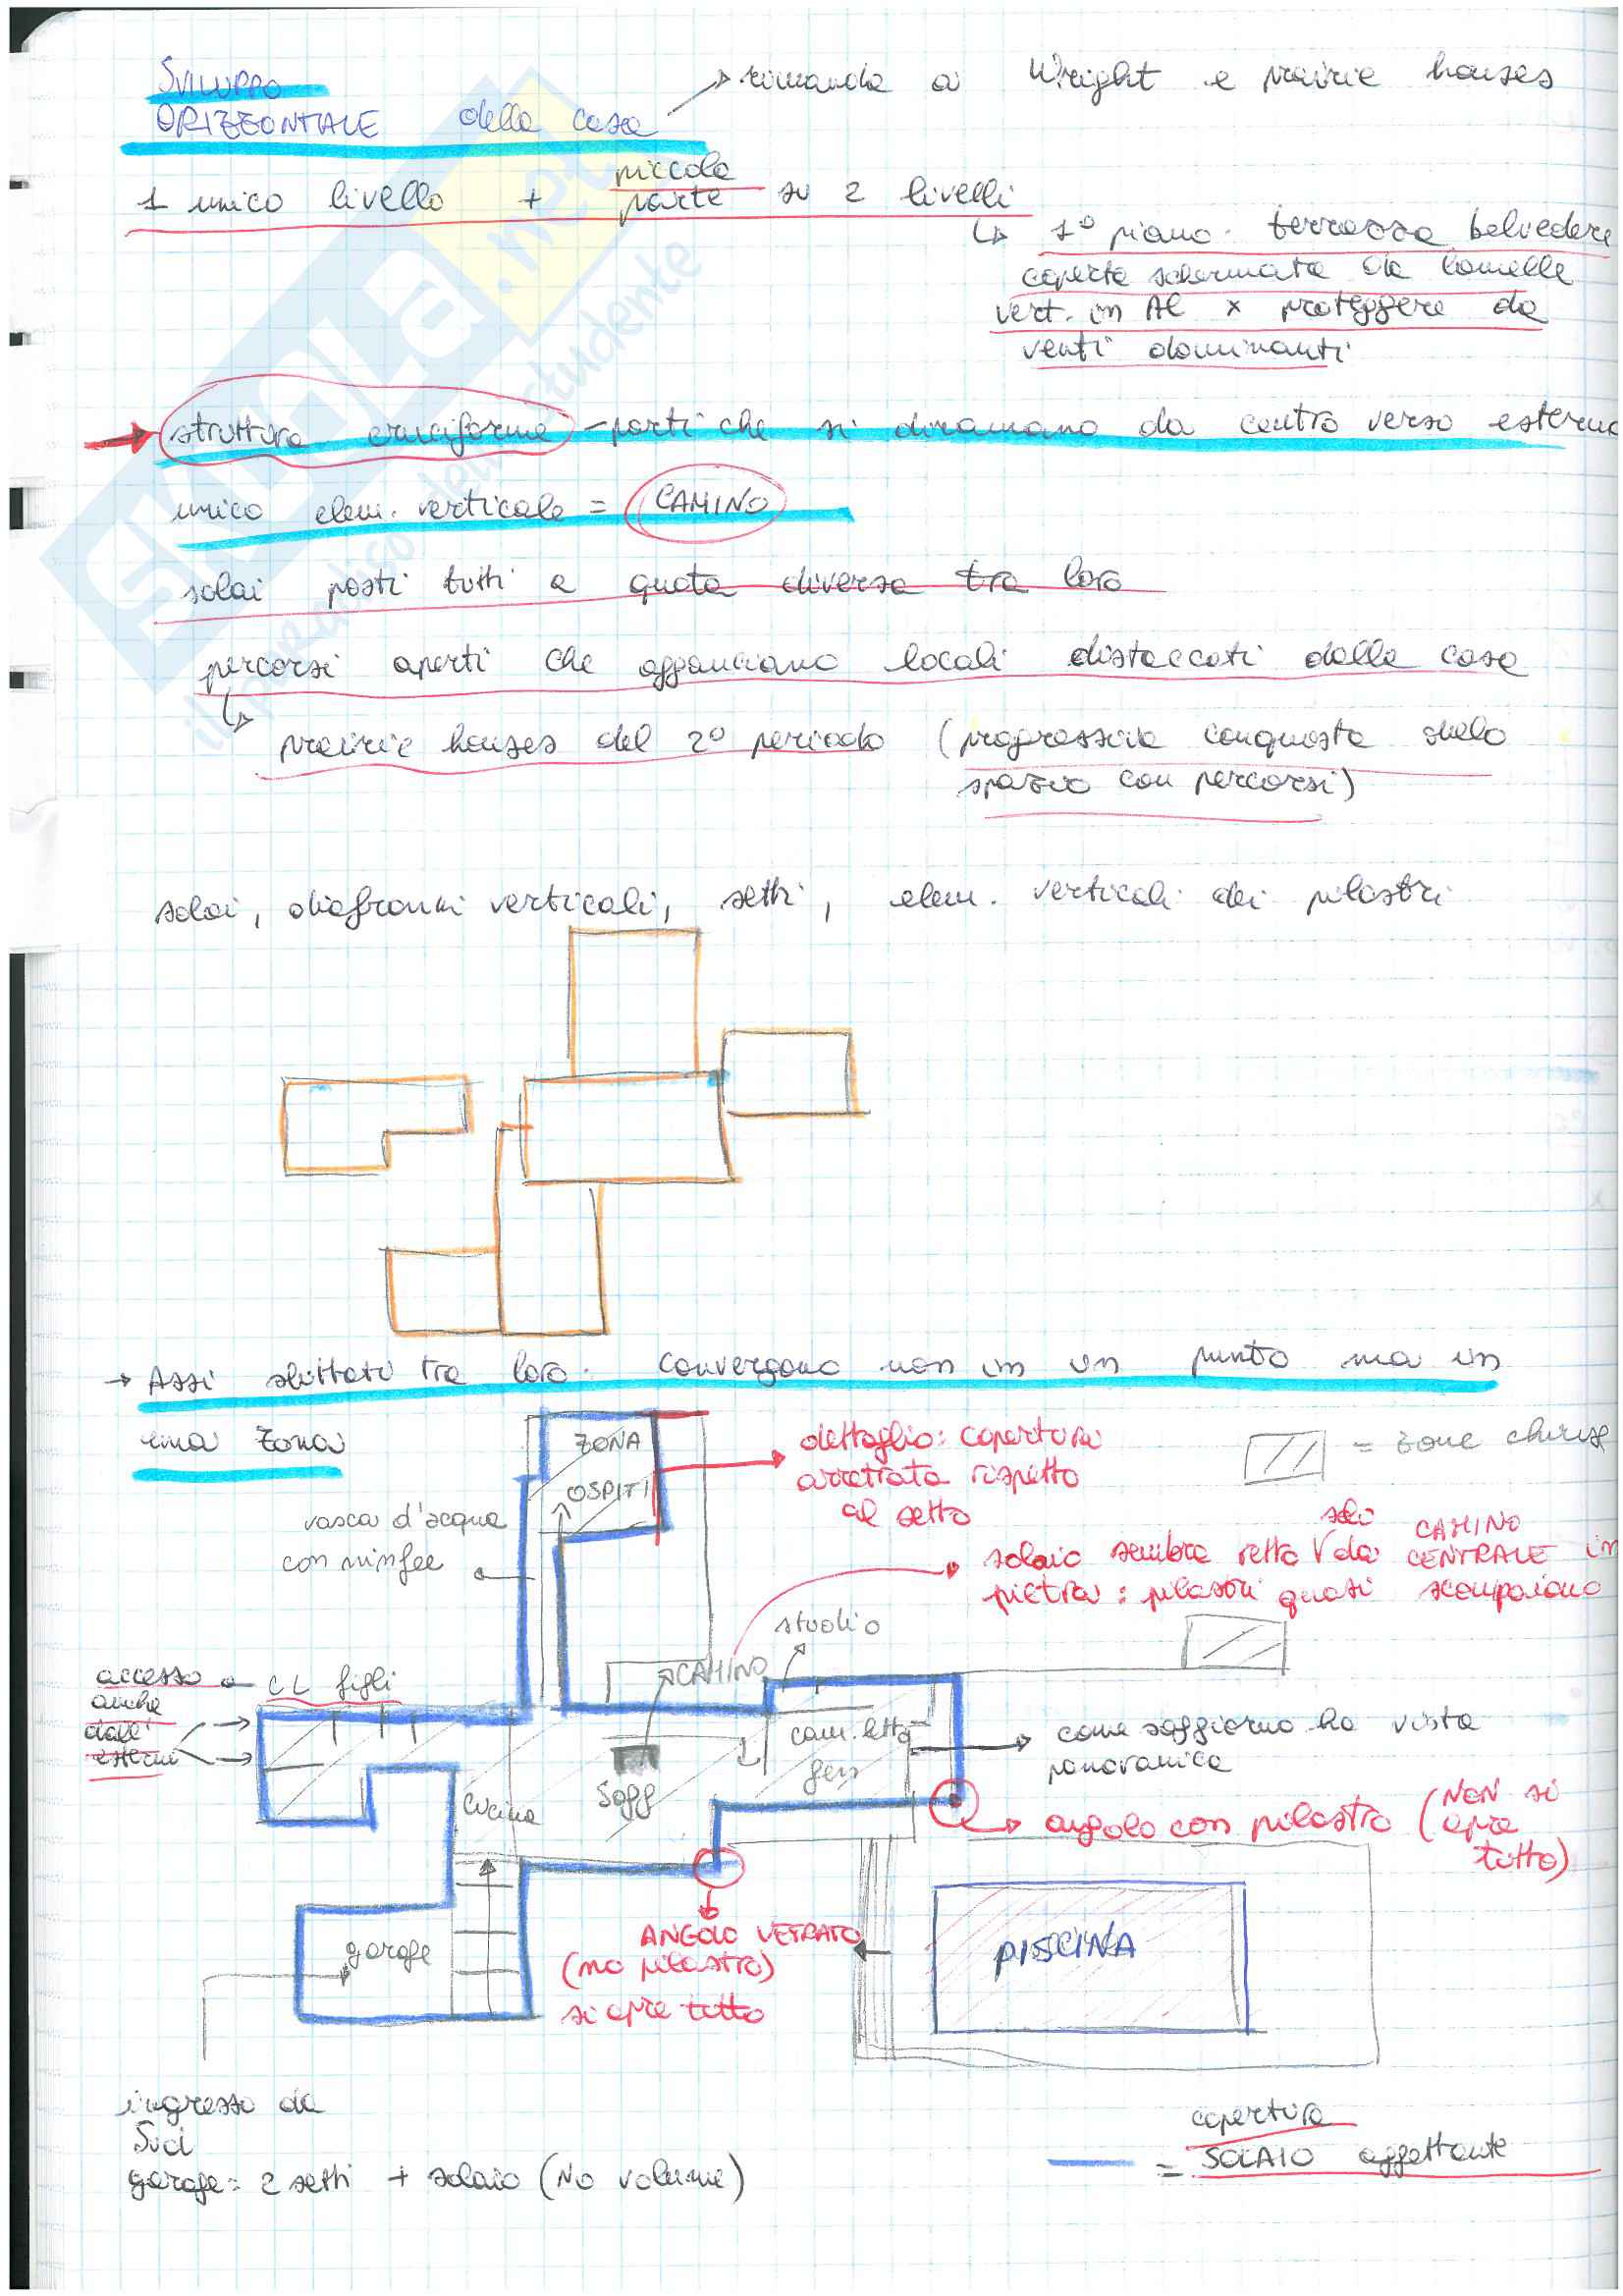 SVILUPPO
ORIZZONTALE della casa → rimanda a Wright e prairie houses
1 unico livello + piccola parte su 2 livelli
↳ 1° piano: terrazza belvedere
coperta schermata da lamelle
vert. in Al x proteggere da
venti dominanti
→ struttura cruciforme - parti che si diramano da centro verso esterno
unico elem. verticale = CAMINO
solai posti tutti a quota diversa tra loro
percorsi aperti che agganciano locali distaccati dalla casa
↳ prairie houses del 2° periodo (progressiva conquista dello
spazio con percorsi)
solai, diaframmi verticali, setti, elem. verticali dei pilastri
→ Assi slittati tra loro. Convergono non in un punto ma in
una zona
ZONA
OSPITI
dettaglio: copertura
arretrata rispetto
al setto
= zone chiuse
vasca d'acqua
con ninfee
solaio sembra retto solo da CAMINO
CENTRALE in
pietra: pilastri quasi scompaiono
studio
CAMINO
accesso
anche
dall'
esterno
CL figli
cam. letto
gen
come soggiorno ha vista
panoramica
cucina
Sogg
angolo con pilastro (NON si
apre
tutto)
garage
ANGOLO VETRATO
(no pilastro)
si apre tutto
PISCINA
ingresso da
Sud
garage: 2 setti + solaio (NO volume)
copertura
= SOLAIO aggettante
SKUOLA.net
il paradiso dello studente